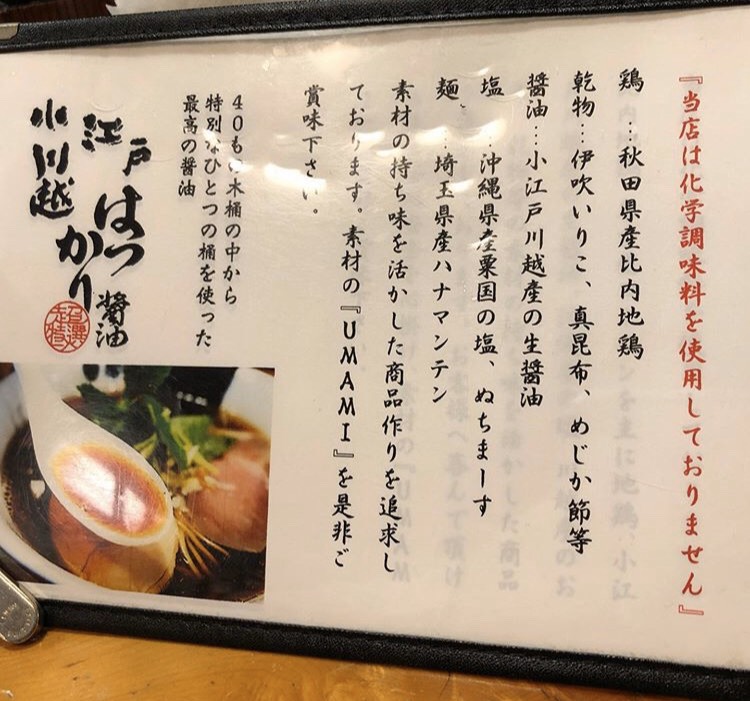 『当店は化学調味料を使用しておりません』
鶏…秋田県産比内地鶏
乾物…伊吹いりこ、真昆布、めじか節等
醤油…小江戸川越産の生醤油
塩…沖縄県産粟国の塩、ぬちまーす
麺…埼玉県産ハナマンテン
素材の持ち味を活かした商品作りを追求し
ております。素材の『UMAMI』を是非ご
賞味下さい。
40も 木桶の中から
特別なひとつの桶を使った
最高の醤油
小江戸
川越
はつかり
醤油
超特選